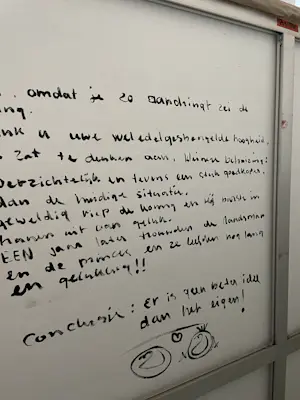 . omdat je zo aandringt zei de
ng.
nk u uwe weledelgestrengelde hoogheid.
zat te denken aan, kleine beloning!
overzichtelijk en tevens een stuk goedkoper.
dan de huidige situatie.
geweldig riep de koning en hij
haren uit van geluk.
EEN jaar later trouwden de landsman
en de prinses en ze leefden nog lang
en gelukkig!!
Conclusie: Er is geen beter idee
dan het eigen!